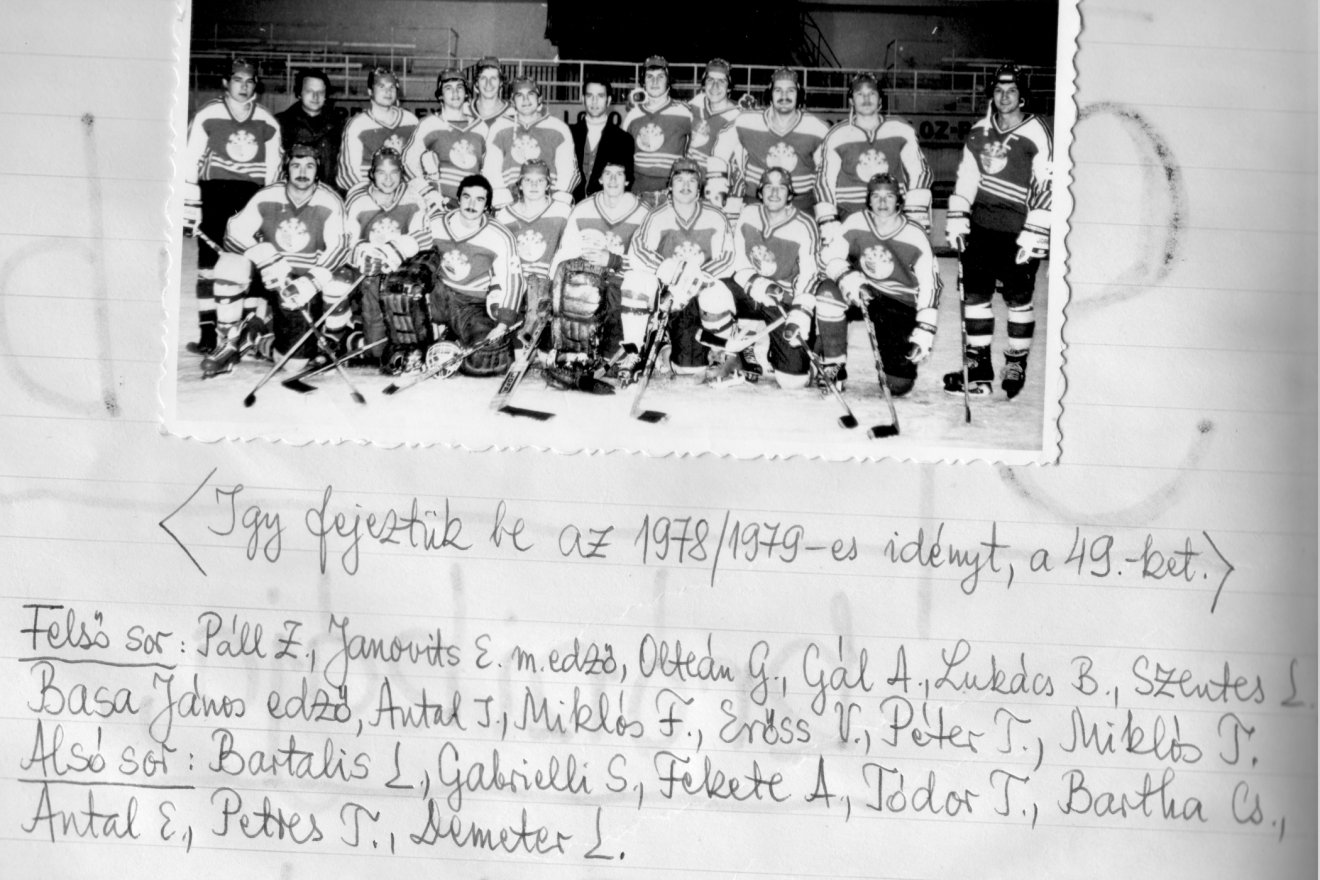 OZ-P
<Igy fejeztük be az 1978/1979-es idényt, a 49.-ket.>
Felső sor: Páll Z., Janovits E. m.edző, Olteán G., Gál A., Lukács B., Szentes L.
Basa János edző, Antal I., Miklós F., Erőss V., Péter T., Miklós T.
Alsó sor: Bartalis L., Gabrielli S., Fekete A., Tódor T., Bartha Cs.,
Antal E., Petres T., Demeter L.